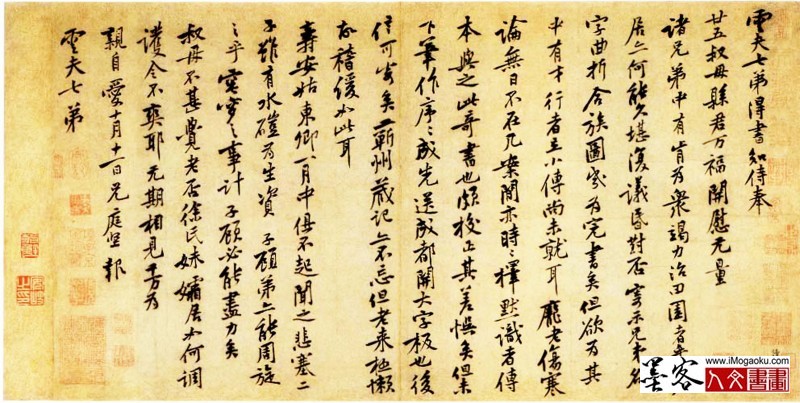 雲夫七弟得書知侍奉
廿五叔母縣君万福開慰无量
諸兄弟中有肯為衆竭力治田園者
居亦何能久堪復議昏對否寄示兄弟名
字曲折合族圖幾為完書矣但欲為其
中有才行者立小傳尚未就耳龐老傷寒
論無日不在几案間亦時時擇默識者傳
本與之此奇書也頗校正其差悞矣但未
下筆作序序成先送成都開大字板也後
信可寄矣蘄州藏記亦不忘但老來極懶
故稽緩如此耳
壽安姑東卿一月中俱不起聞之悲塞二
子雖有水磑為生資子顧弟亦能周旋
之乎窀穸之事計子顧必能盡力矣
叔母不甚覺老否徐氏妹孀居如何調
護令不爽耶无期相見千万為
親自愛十月十一日兄庭堅報
雲夫七弟
www.iMogaoku.com
墨客人文書畫